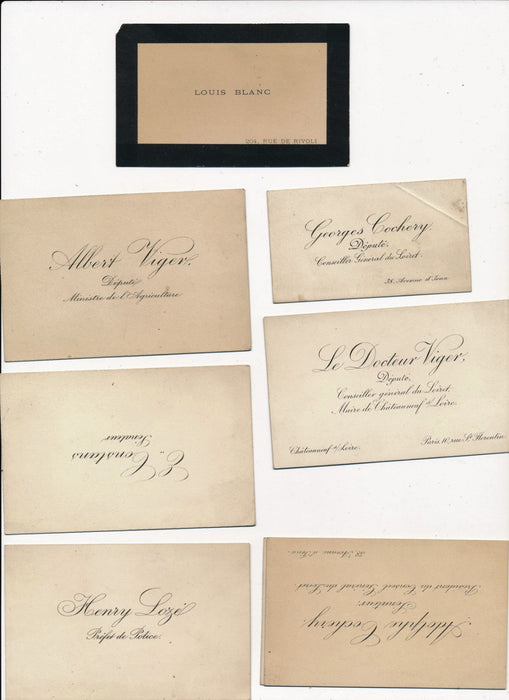 LOUIS BLANC
204, RUE DE RIVOLI
Albert Viger.
Député
Ministre de l'Agriculture
Georges Cochery.
Député.
Conseiller Général du Loiret.
38, Avenue d'Iéna
Le Docteur Viger,
Député,
Conseiller général du Loiret.
Maire de Châteauneuf s/ Loire.
Châteauneuf s/ Loire.
Paris, 10, rue St Florentin.
E. Constans
Sénateur
Henry Lozé
Préfet de Police.
Adolphe Cochery,
Sénateur,
Président du Conseil Général du Loiret
38, Avenue d'Iéna.